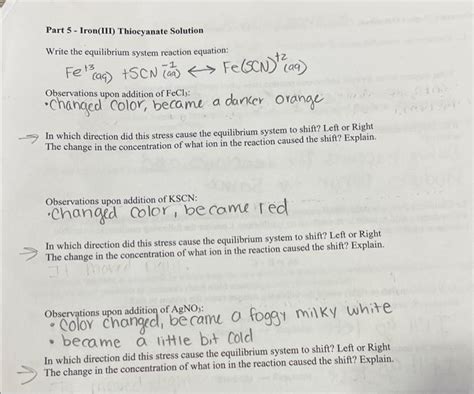 Part 5 - Iron(III) Thiocyanate Solution
Write the equilibrium system reaction equation:
Fe⁺³(aq) + SCN⁻¹(aq) ↔ Fe(SCN)⁺²(aq)
Observations upon addition of FeCl₃:
•Changed color, became a darker orange
→ In which direction did this stress cause the equilibrium system to shift? Left or Right
The change in the concentration of what ion in the reaction caused the shift? Explain.
Observations upon addition of KSCN:
•changed color, became red
→ In which direction did this stress cause the equilibrium system to shift? Left or Right
The change in the concentration of what ion in the reaction caused the shift? Explain.
Observations upon addition of AgNO₃:
• Color changed, became a foggy milky white
• became a little bit cold
→ In which direction did this stress cause the equilibrium system to shift? Left or Right
The change in the concentration of what ion in the reaction caused the shift? Explain.